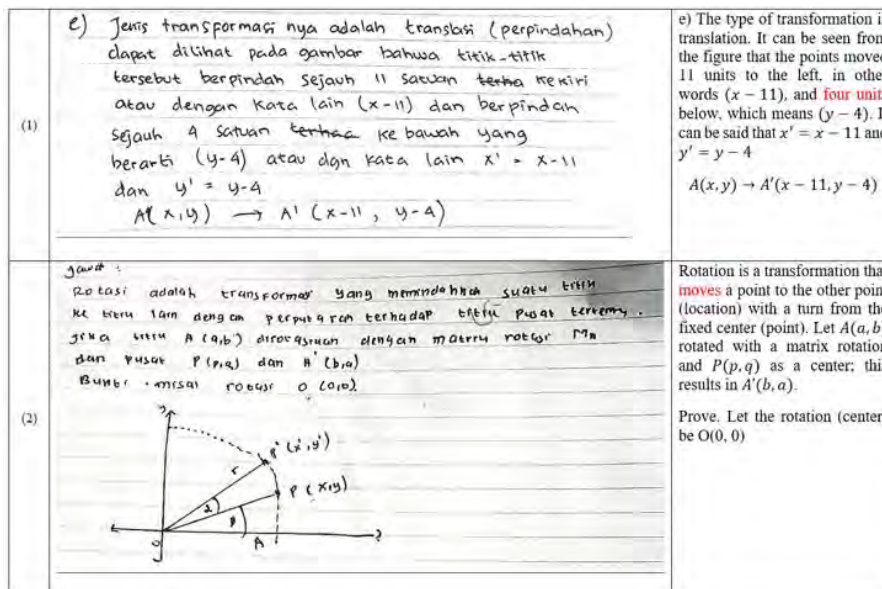 (1)
e) Jenis transformasi nya adalah translasi (perpindahan)
dapat dilihat pada gambar bahwa titik-titik
tersebut berpindah sejauh 11 satuan terha kekiri
atau dengan kata lain (x-11) dan berpindah
sejauh 4 satuan terhaa ke bawah yang
berarti (y-4) atau dgn kata lain x' = x-11
dan y' = y-4
A(x,y) → A' (x-11, y-4)
e) The type of transformation i
translation. It can be seen from
the figure that the points moved
11 units to the left, in othe
words (x − 11), and four unit
below, which means (y − 4). I
can be said that x' = x − 11 and
y' = y − 4
A(x, y) → A'(x − 11, y − 4)
(2)
Jawab :
Rotasi adalah transformasi yang memindahkan suatu titik
ke titik lain dengan perputaran terhadap titik pusat tertentu.
jika titik A (a,b) dirotasikan dengan matrik rotasi
dan pusat P (p,q) dan A' (b,a)
Bukti . misal rotasi O (0,0)
P' (x',y')
r
P (x,y)
α
β
O
A
Rotation is a transformation tha
moves a point to the other poin
(location) with a turn from the
fixed center (point). Let A(a, b
rotated with a matrix rotation
and P(p, q) as a center; thi
results in A'(b, a).
Prove. Let the rotation (center
be O(0, 0)